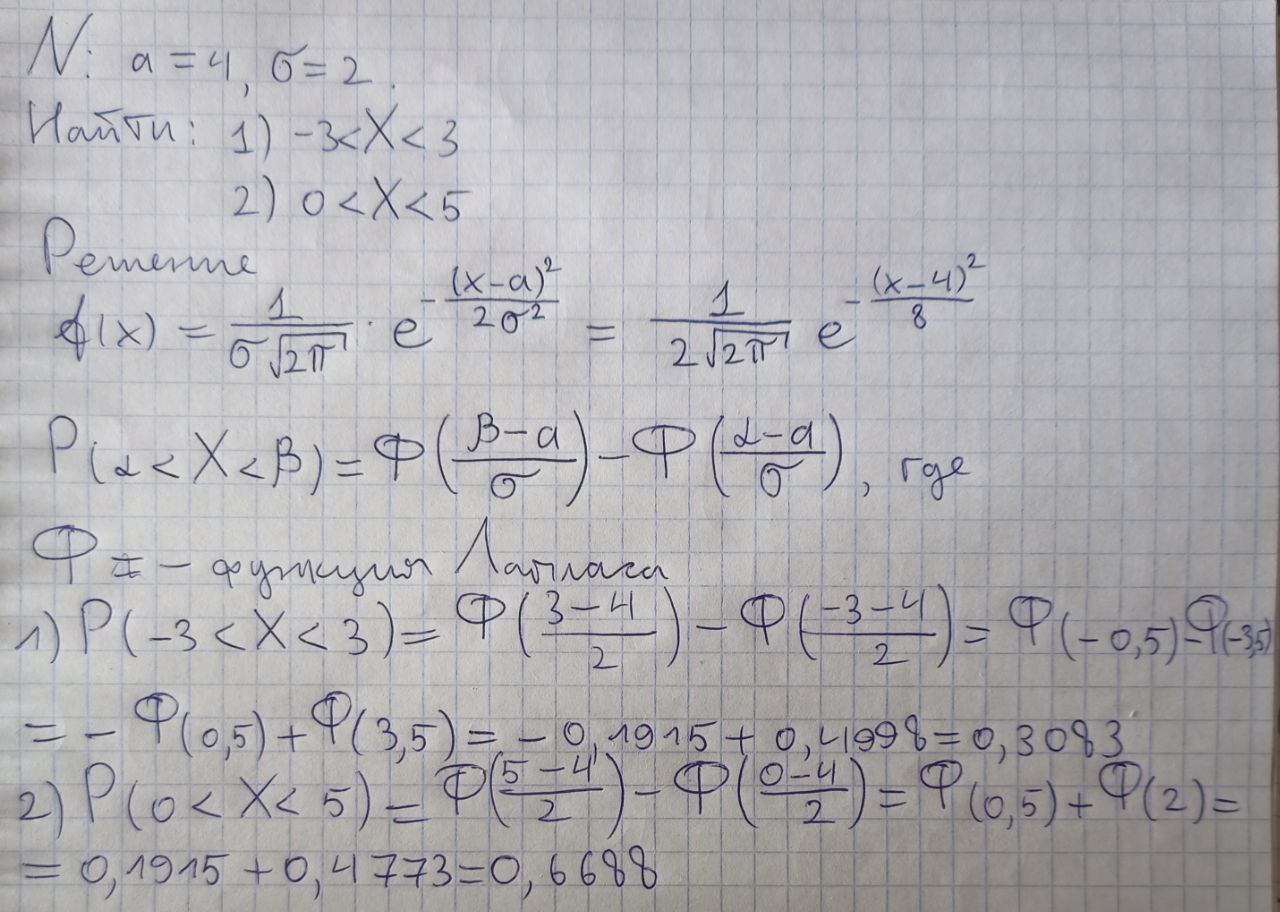 N: a = 4, σ = 2.
Найти: 1) -3 < X < 3
2) 0 < X < 5
Решение
f(x) = 1/(σ√(2π)) · e^(-(x-a)²/(2σ²)) = 1/(2√(2π)) e^(-(x-4)²/8)
P(α < X < β) = Ф((β-a)/σ) - Ф((α-a)/σ), где
Ф - функция Лапласа
1) P(-3 < X < 3) = Ф((3-4)/2) - Ф((-3-4)/2) = Ф(-0,5) - Ф(-3,5)
= - Ф(0,5) + Ф(3,5) = - 0,1915 + 0,4998 = 0,3083
2) P(0 < X < 5) = Ф((5-4)/2) - Ф((0-4)/2) = Ф(0,5) + Ф(2) =
= 0,1915 + 0,4773 = 0,6688